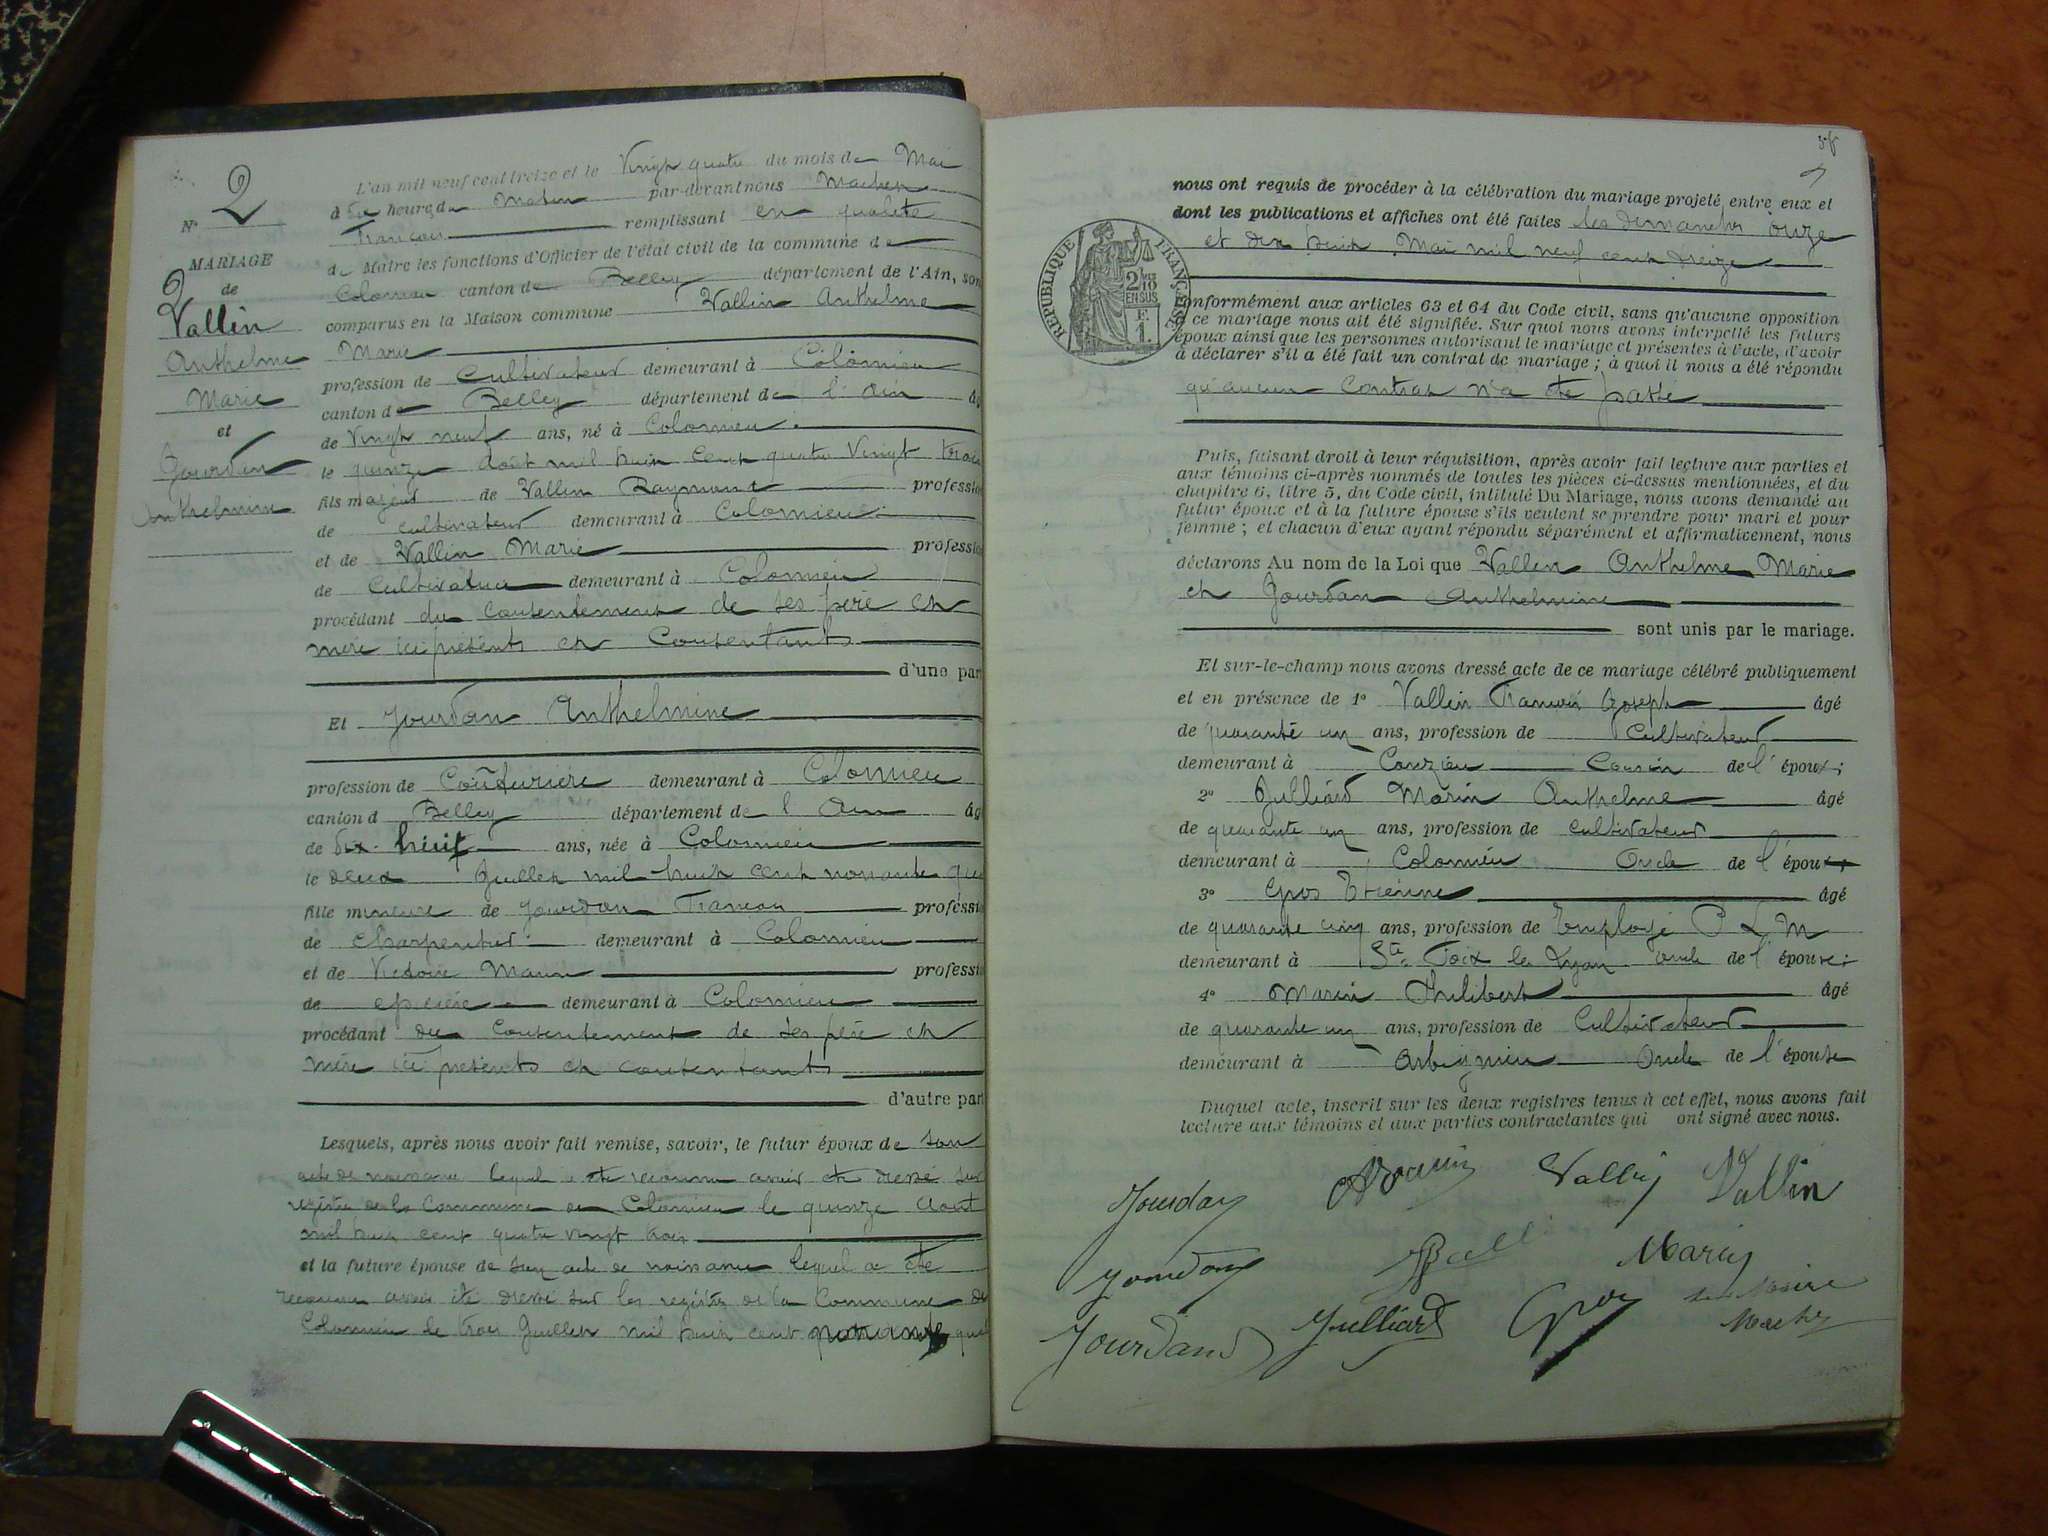 N° 2
MARIAGE
de
Vallin
Anthelme
Marie
et
Jourdan
Anthelmine
L'an mil neuf cent treize et le Vingt quatre du mois de Mai
à dix heures du Matin par-devant nous
François remplissant en qualité
de Maire les fonctions d'Officier de l'état civil de la commune de
Colomieu canton de Belley département de l'Ain, son
comparus en la Maison commune Vallin Anthelme
Marie
profession de Cultivateur demeurant à Colomieu
canton de Belley département de l'Ain âg
de Vingt neuf ans, né à Colomieu
le quinze Août mil huit cent quatre Vingt trois
fils majeur de Vallin Raymond profession
de cultivateur demeurant à Colomieu
et de Vallin Marie professio
de Cultivatrice demeurant à Colomieu
procédant du consentement de ses père et
mère ici présents et consentants
d'une par
Et Jourdan Anthelmine
profession de Couturière demeurant à Colomieu
canton d Belley département de l Ain âg
de dix huit ans, née à Colomieu
le deux Juillet mil huit cent nonante qua
fille mineure de Jourdan François professi
de charpentier demeurant à Colomieu
et de Victoire Marin professi
de épicière demeurant à Colomieu
procédant du consentement de ses père et
mère ici présents et consentants
d'autre part
Lesquels, après nous avoir fait remise, savoir, le futur époux de son
acte de naissance lequel a été reconnu avoir été dressé sur
registre de la Commune de Colomieu le quinze Aout
mil huit cent quatre vingt trois
et la future épouse de son acte de naissance lequel a été
reconnu avoir été dressé sur les registres de la Commune de
Colomieu le trois Juillet mil huit cent nonante qua
58
nous ont requis de procéder à la célébration du mariage projeté entre eux et
dont les publications et affiches ont été faites les dimanches onze
et dix huit Mai mil neuf cent treize
REPUBLIQUE FRANÇAISE
2/10 EN SUS
F. 1.
conformément aux articles 63 et 64 du Code civil, sans qu'aucune opposition
à ce mariage nous ait été signifiée. Sur quoi nous avons interpellé les futurs
époux ainsi que les personnes autorisant le mariage et présentes à l'acte, d'avoir
à déclarer s'il a été fait un contrat de mariage ; à quoi il nous a été répondu
qu'aucun contrat n'a été passé
Puis, faisant droit à leur réquisition, après avoir fait lecture aux parties et
aux témoins ci-après nommés de toutes les pièces ci-dessus mentionnées, et du
chapitre 6, titre 5, du Code civil, intitulé Du Mariage, nous avons demandé au
futur époux et à la future épouse s'ils veulent se prendre pour mari et pour
femme ; et chacun d'eux ayant répondu séparément et affirmativement, nous
déclarons Au nom de la Loi que Vallin Anthelme Marie
et Jourdan Anthelmine
sont unis par le mariage.
Et sur-le-champ nous avons dressé acte de ce mariage célébré publiquement
et en présence de 1° Vallin François Joseph âgé
de quarante un ans, profession de Cultivateur
demeurant à Conzieu Cousin de l'époux;
2° Julliard Marin Anthelme âgé
de quarante un ans, profession de cultivateur
demeurant à Colomieu Oncle de l'époux;
3° Gros Etienne âgé
de quarante cinq ans, profession de Employé P L M
demeurant à Ste Foix les Lyon oncle de l'épouse;
4° Marin Philibert âgé
de quarante un ans, profession de Cultivateur
demeurant à Arbignieu Oncle de l'épouse
Duquel acte, inscrit sur les deux registres tenus à cet effet, nous avons fait
lecture aux témoins et aux parties contractantes qui ont signé avec nous.
Jourdan Vallin Vallin
Jourdan Marin
Jourdan Julliard Gros Le Maire